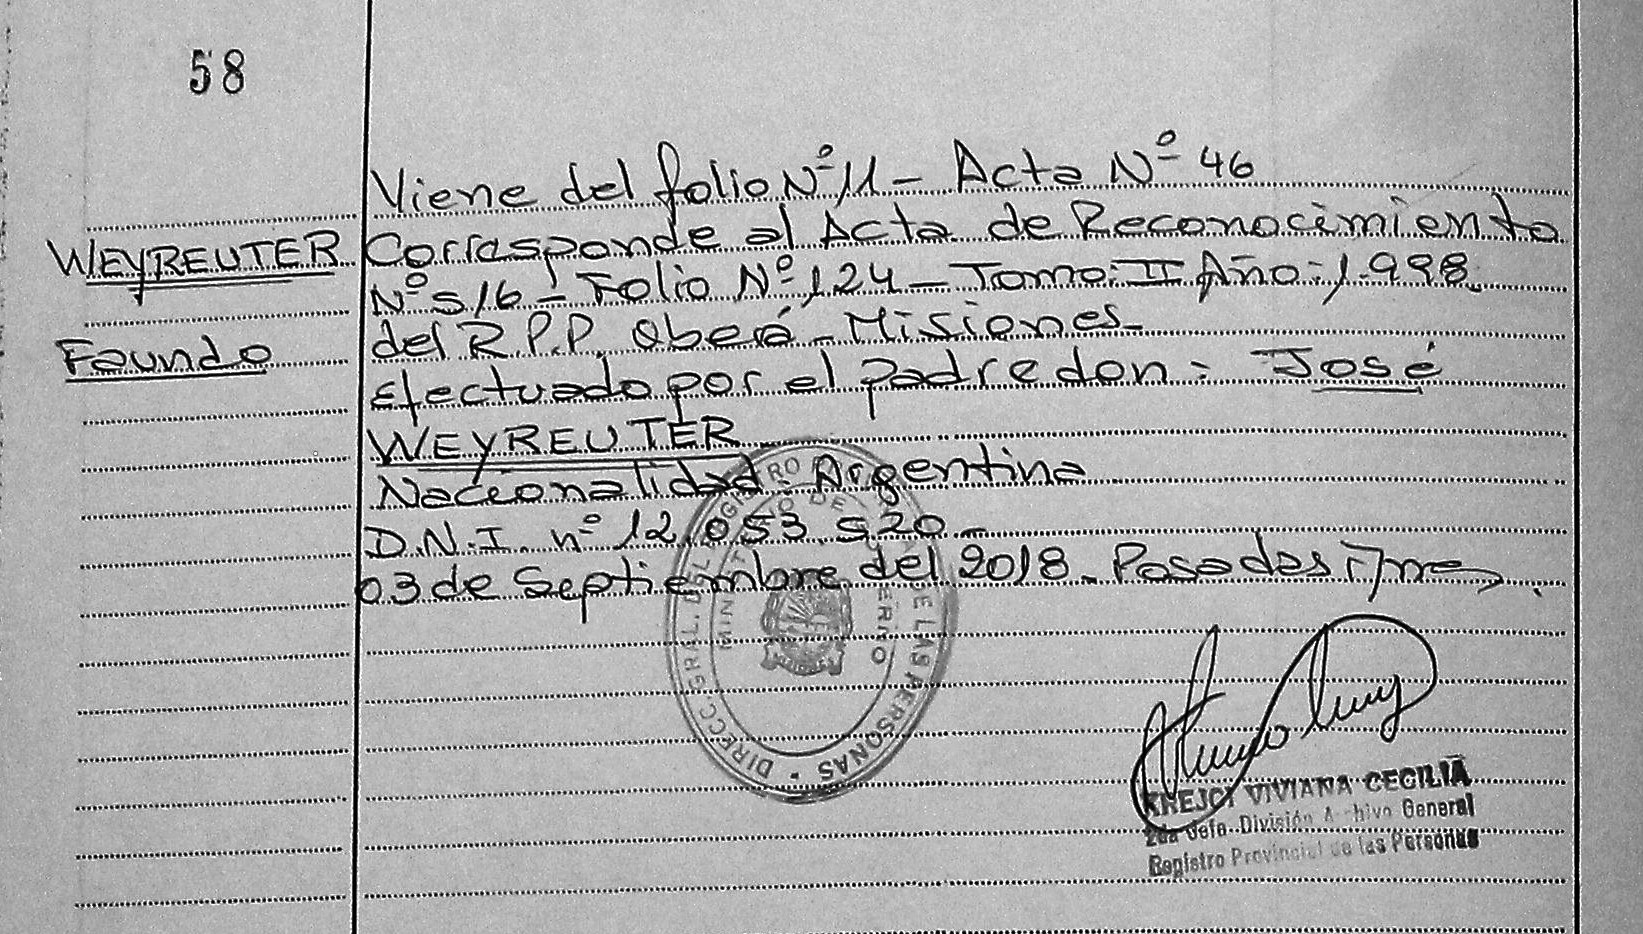 58
Viene del folio Nº 11 - Acta Nº 46
WEYREUTER
Corresponde al Acta de Reconocimiento
Nº 516 - Folio Nº 124 - Tomo: II Año: 1.998.
Faundo
del R.P.P. Oberá - Misiones -
efectuado por el padre don: José
WEYREUTER
Nacionalidad: Argentina
D.N.I. nº 12.053.520 -
03 de Septiembre del 2018. Posadas
DIRECC. GRAL. DEL REGISTRO DE LAS PERSONAS
VIVIANA CECILIA
2da Jefe División Archivo General
Registro Provincial de las Personas